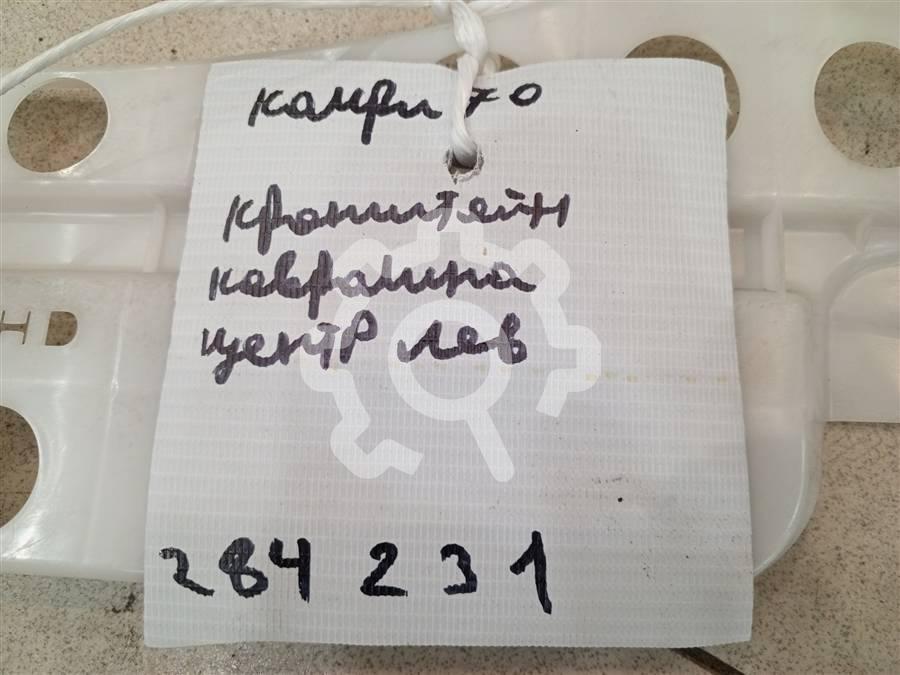 камри 70
HD
кронштейн
коврамна
центр лев
284 231